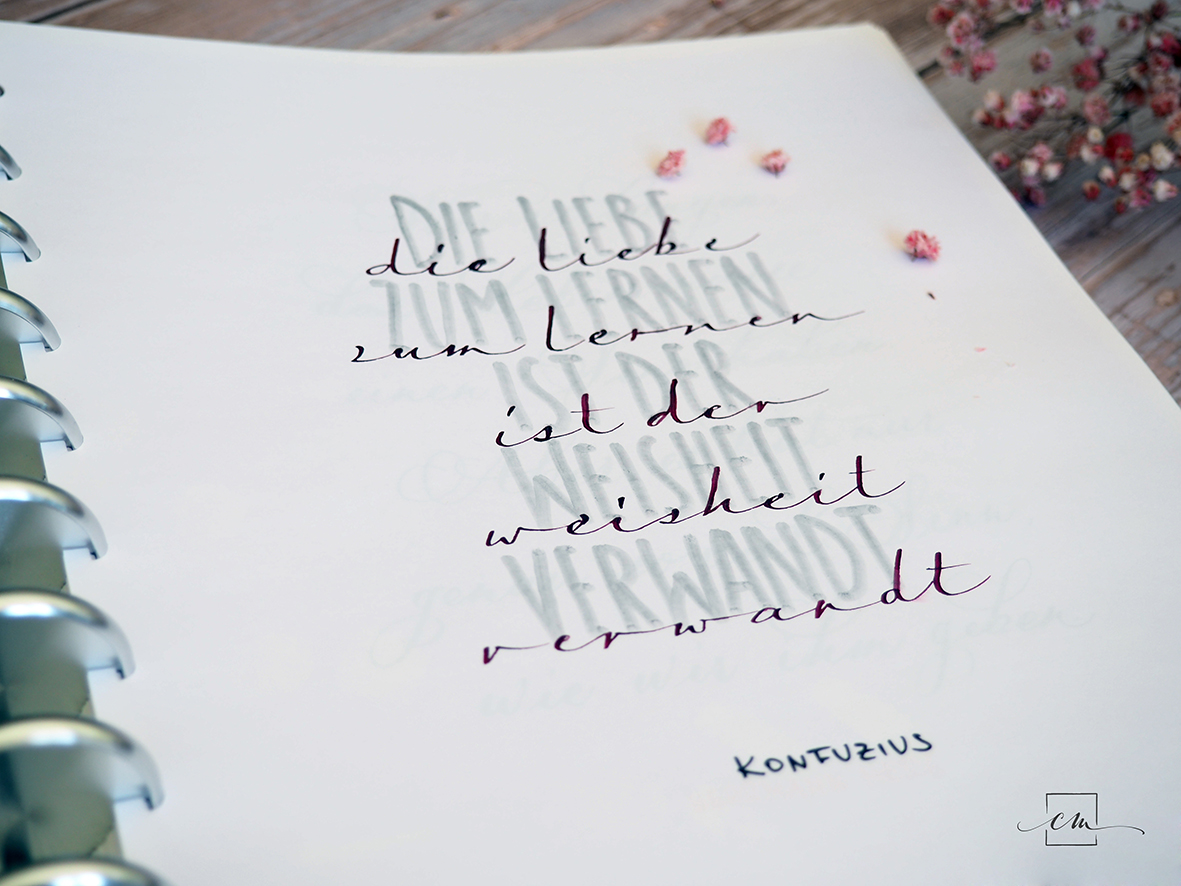 DIE LIEBE
die liebe
ZUM LERNEN
zum lernen
IST DER
ist der
WEISHEIT
weisheit
VERWANDT
verwandt
KONFUZIUS
cm